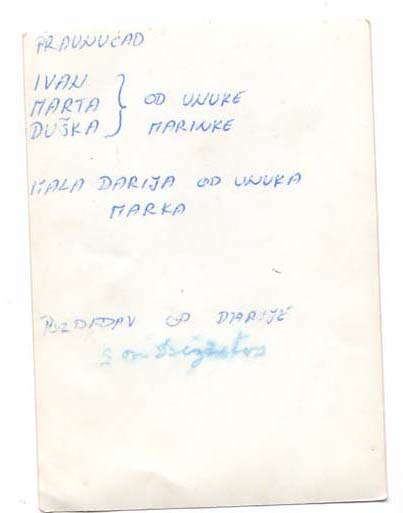 PRAUNUČAD
IVAN
MARTA } OD UNUKE
DUŠKA MARINKE
MALA DARIJA OD UNUKA
MARKA
POZDRAV OD DARIJE